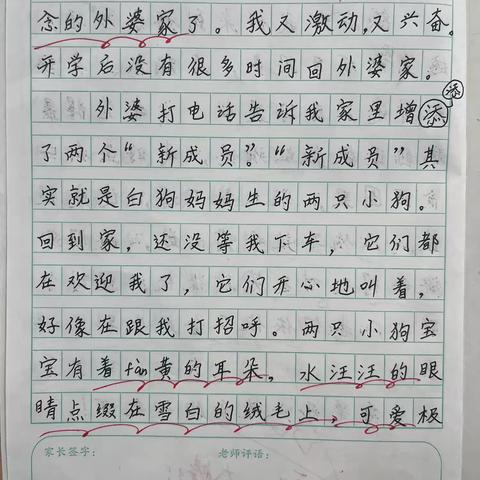 念的外婆家了。我又激动,又兴奋。
开学后没有很多时间回外婆家。
添
外婆打电话告诉我家里增添
了两个“新成员”。“新成员”其
实就是白狗妈妈生的两只小狗。
回到家,还没等我下车,它们都
在欢迎我了,它们开心地叫着,
好像在跟我打招呼。两只小狗宝
宝有着fàn黄的耳朵,水汪汪的眼
睛点缀在雪白的绒毛上,可爱极
家长签字: 老师评语: